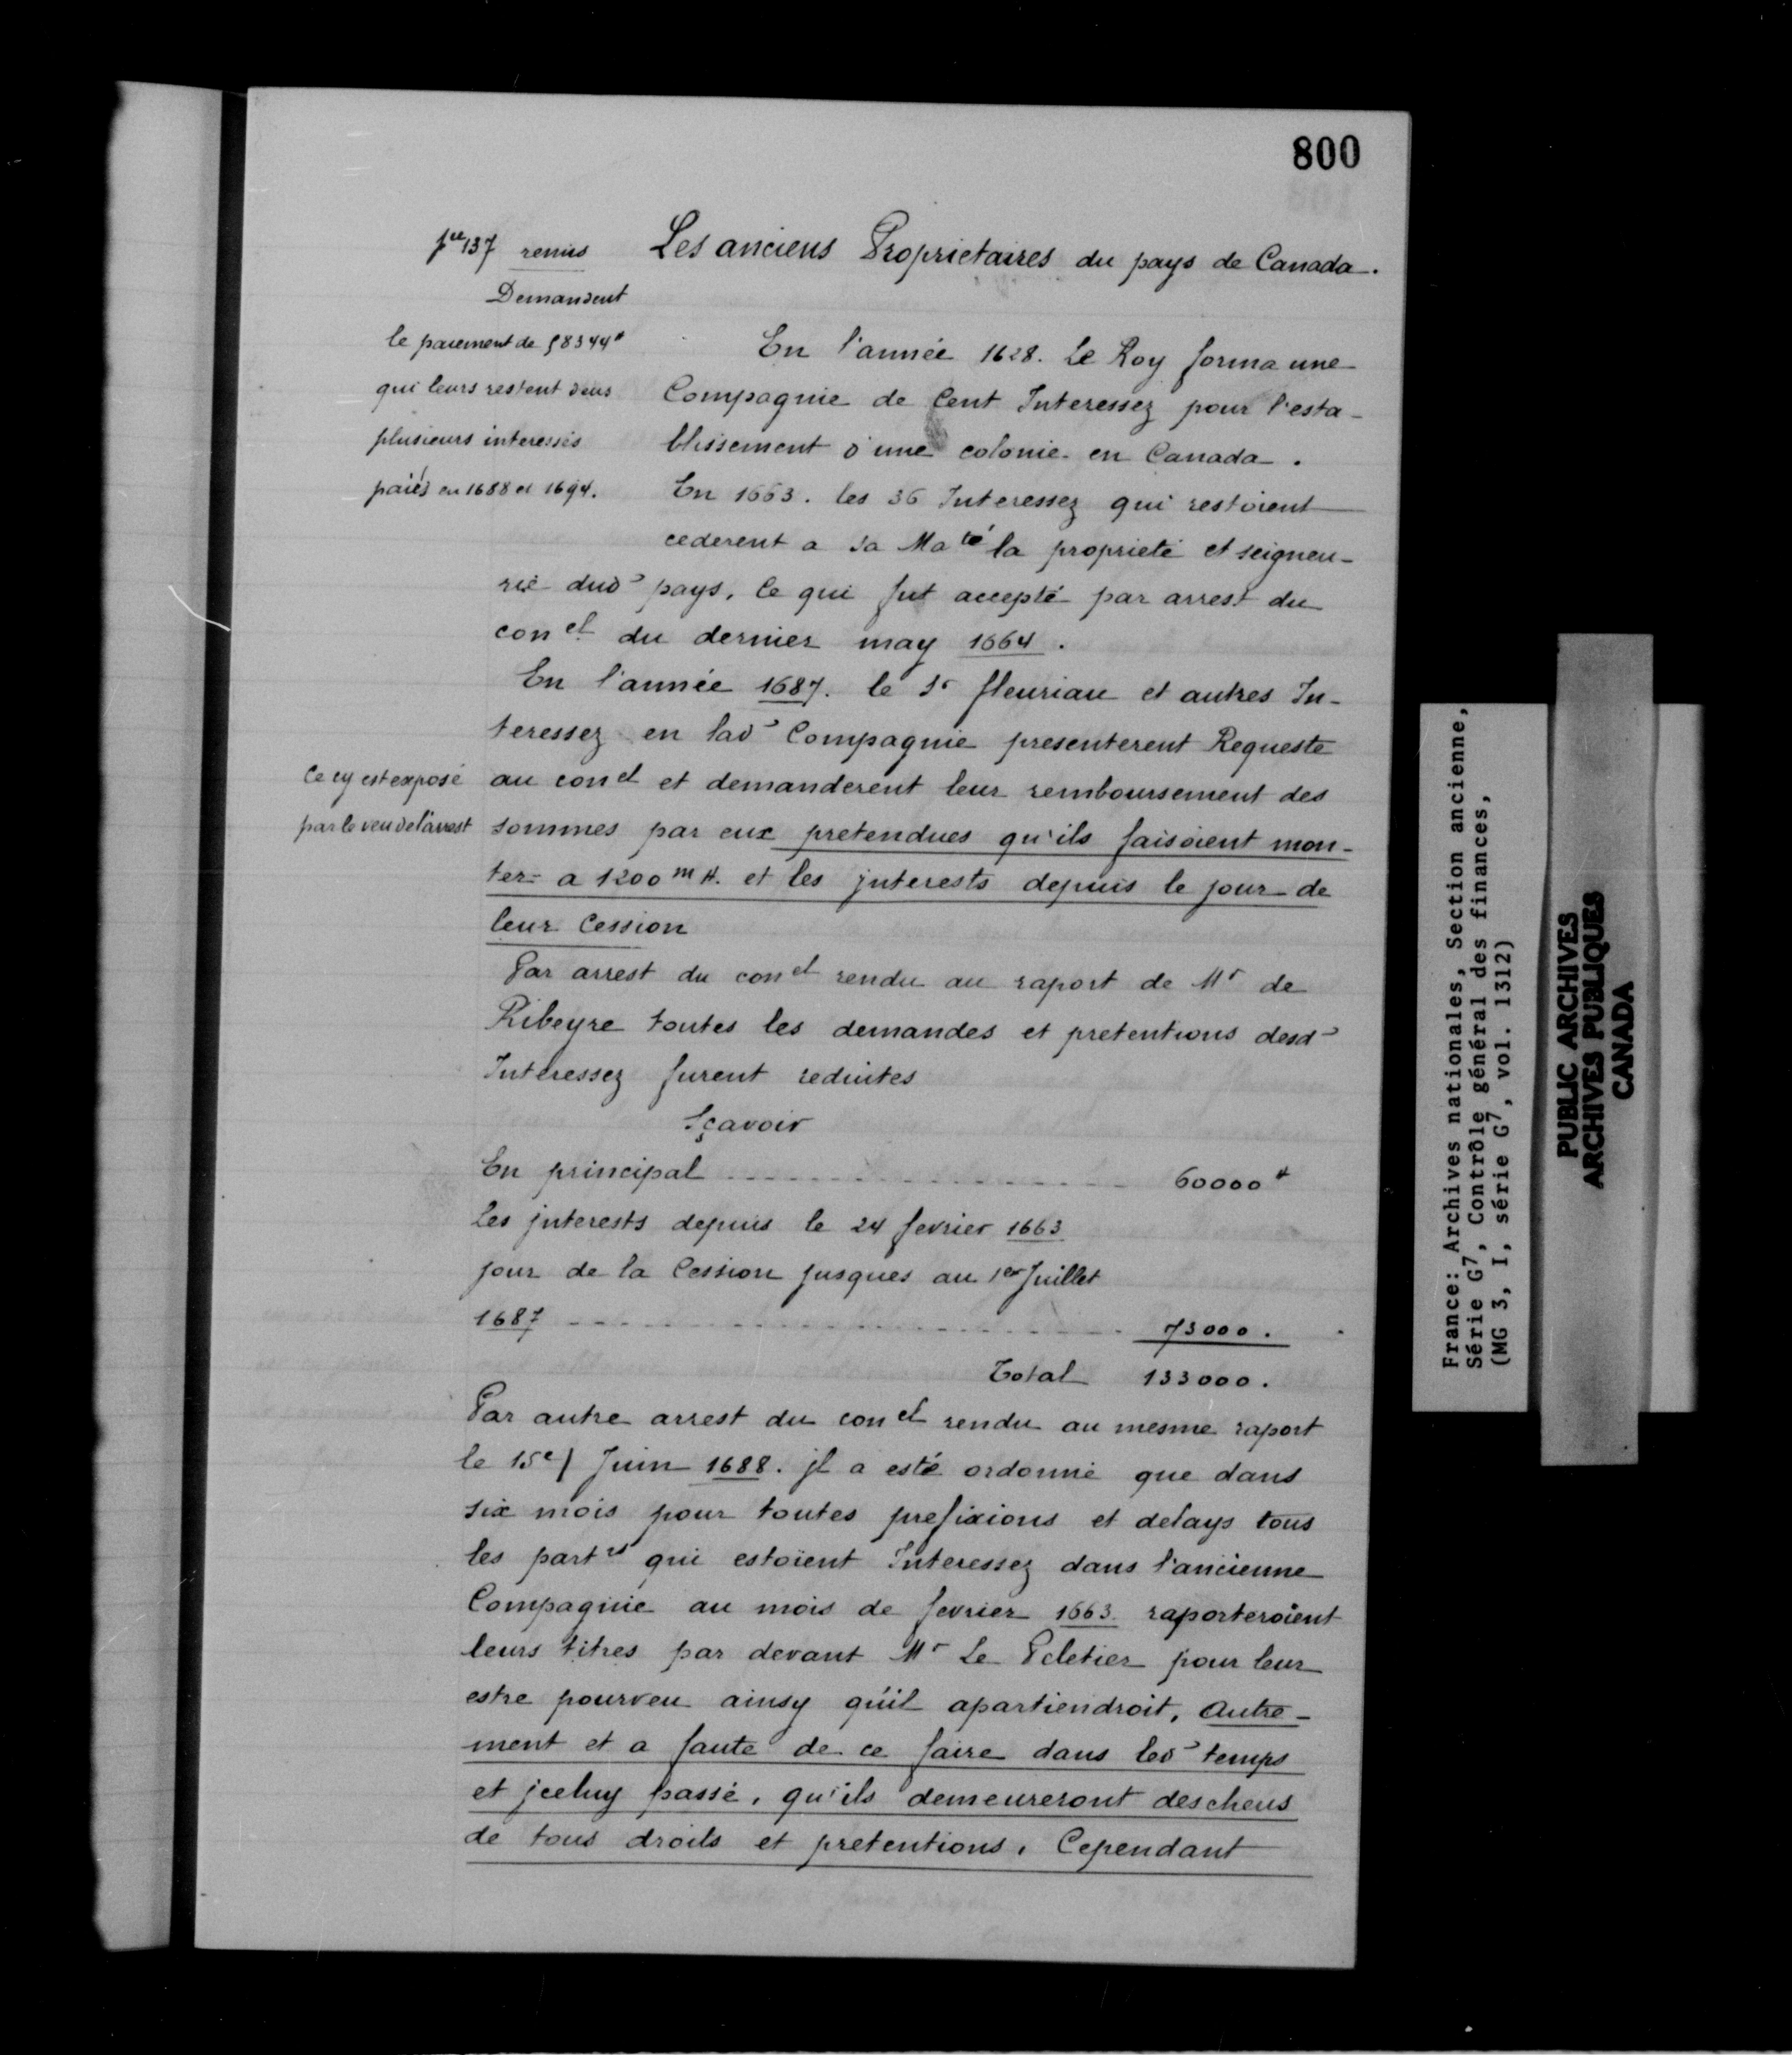 800
pce 137 remis
Les anciens Proprietaires du pays de Canada.
Demandent
le paiement de 58344#
qui leurs restent deus
plusieurs interessés
paiés en 1688 et 1694.
En l'année 1628. Le Roy forma une
Compagnie de Cent Interessez pour l'esta-
blissement d'une colonie en Canada.
En 1663. les 36 Interessez qui restoient
cederent a sa Maté la proprieté et seigneu-
rie dud' pays, ce qui fut accepté par arrest du
conel du dernier may 1664.
En l'année 1687. le Sr fleuriau et autres In-
teressez en lad' Compagnie presenterent Requeste
Ce cy est exposé
par le veu de l'arrest
au conel et demanderent leur remboursement des
sommes par eux pretendues qu'ils faisoient mon-
ter a 1200 m #. et les jnterests depuis le jour de
leur Cession
Par arrest du conel rendu au raport de Mr de
Ribeyre toutes les demandes et pretentions desd'
Interessez furent reduites
Sçavoir
En principal ................ 60000#
Les jnterests depuis le 24 fevrier 1663
jour de la Cession jusques au 1er Juillet
1687 ................ 73000.
Total 133000.
Par autre arrest du conel rendu au mesme raport
le 15e/ Juin 1688. jl a esté ordonné que dans
six mois pour toutes prefixions et delays tous
les partrs qui estoient Interessez dans l'ancienne
Compagnie au mois de fevrier 1663 raporteroient
leurs titres par devant Mr Le Peletier pour leur
estre pourveu ainsy qu'il apartiendroit, Autre-
ment et a faute de ce faire dans led' temps
et jceluy passé, qu'ils demeureront descheus
de tous droits et pretentions, Cependant
France: Archives nationales, Section ancienne,
Série G7, Contrôle général des finances,
(MG 3, I, série G7, vol. 1312)
PUBLIC ARCHIVES
ARCHIVES PUBLIQUES
CANADA